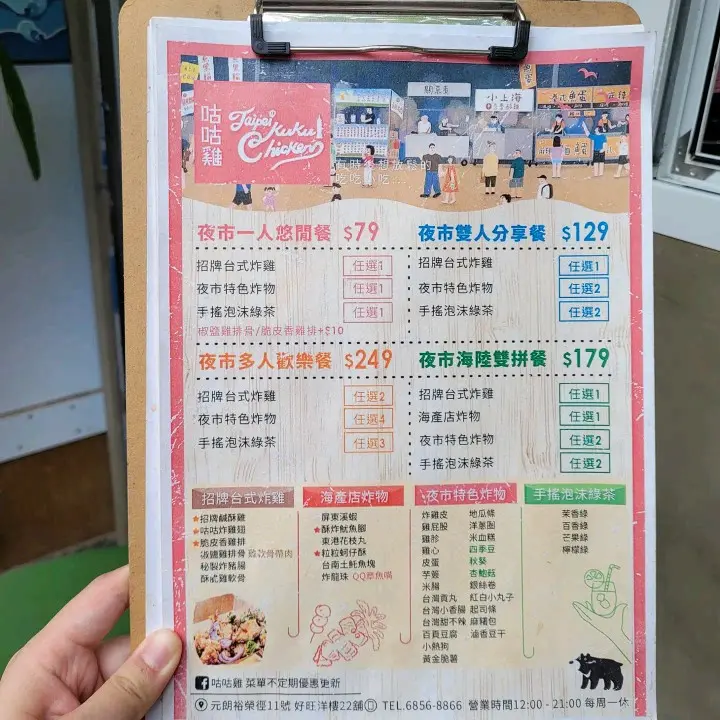 關東煮
小上海
泰式魚蛋
咕咕雞
Taipei
KuKu
Chicken
有時不想放鬆的
吃吃小吃...
夜市一人悠閒餐 $79
招牌台式炸雞 任選1
夜市特色炸物 任選1
手搖泡沫綠茶 任選1
椒鹽雞排骨/脆皮香雞排+$10
夜市雙人分享餐 $129
招牌台式炸雞 任選1
夜市特色炸物 任選2
手搖泡沫綠茶 任選2
夜市多人歡樂餐 $249
招牌台式炸雞 任選2
夜市特色炸物 任選4
手搖泡沫綠茶 任選3
夜市海陸雙拼餐 $179
招牌台式炸雞 任選1
海產店炸物 任選1
夜市特色炸物 任選2
手搖泡沫綠茶 任選2
招牌台式炸雞
★招牌鹹酥雞
★咕咕炸雞翅
★脆皮香雞排
椒鹽雞排骨 雞軟骨帶肉
秘製炸豬腸
酥脆雞軟骨
海產店炸物
屏東溪蝦
★酥炸魷魚腳
東港花枝丸
★粒粒蚵仔酥
台南土魠魚塊
炸龍珠 QQ章魚嘴
夜市特色炸物
炸雞皮 地瓜條
雞屁股 洋蔥圈
雞胗 米血糕
雞心 四季豆
皮蛋 秋葵
芋簽 杏鮑菇
米腸 銀絲卷
台灣貢丸 紅白小丸子
台灣小香腸 起司條
台灣甜不辣 麻糬包
百頁豆腐 滷香豆干
小熱狗
黃金脆薯
手搖泡沫綠茶
茉香綠
百香綠
芒果綠
檸檬綠
咕咕雞 菜單不定期優惠更新
元朗裕榮徑11號 好旺洋樓22舖 TEL.6856-8866 營業時間12:00 - 21:00 每周一休